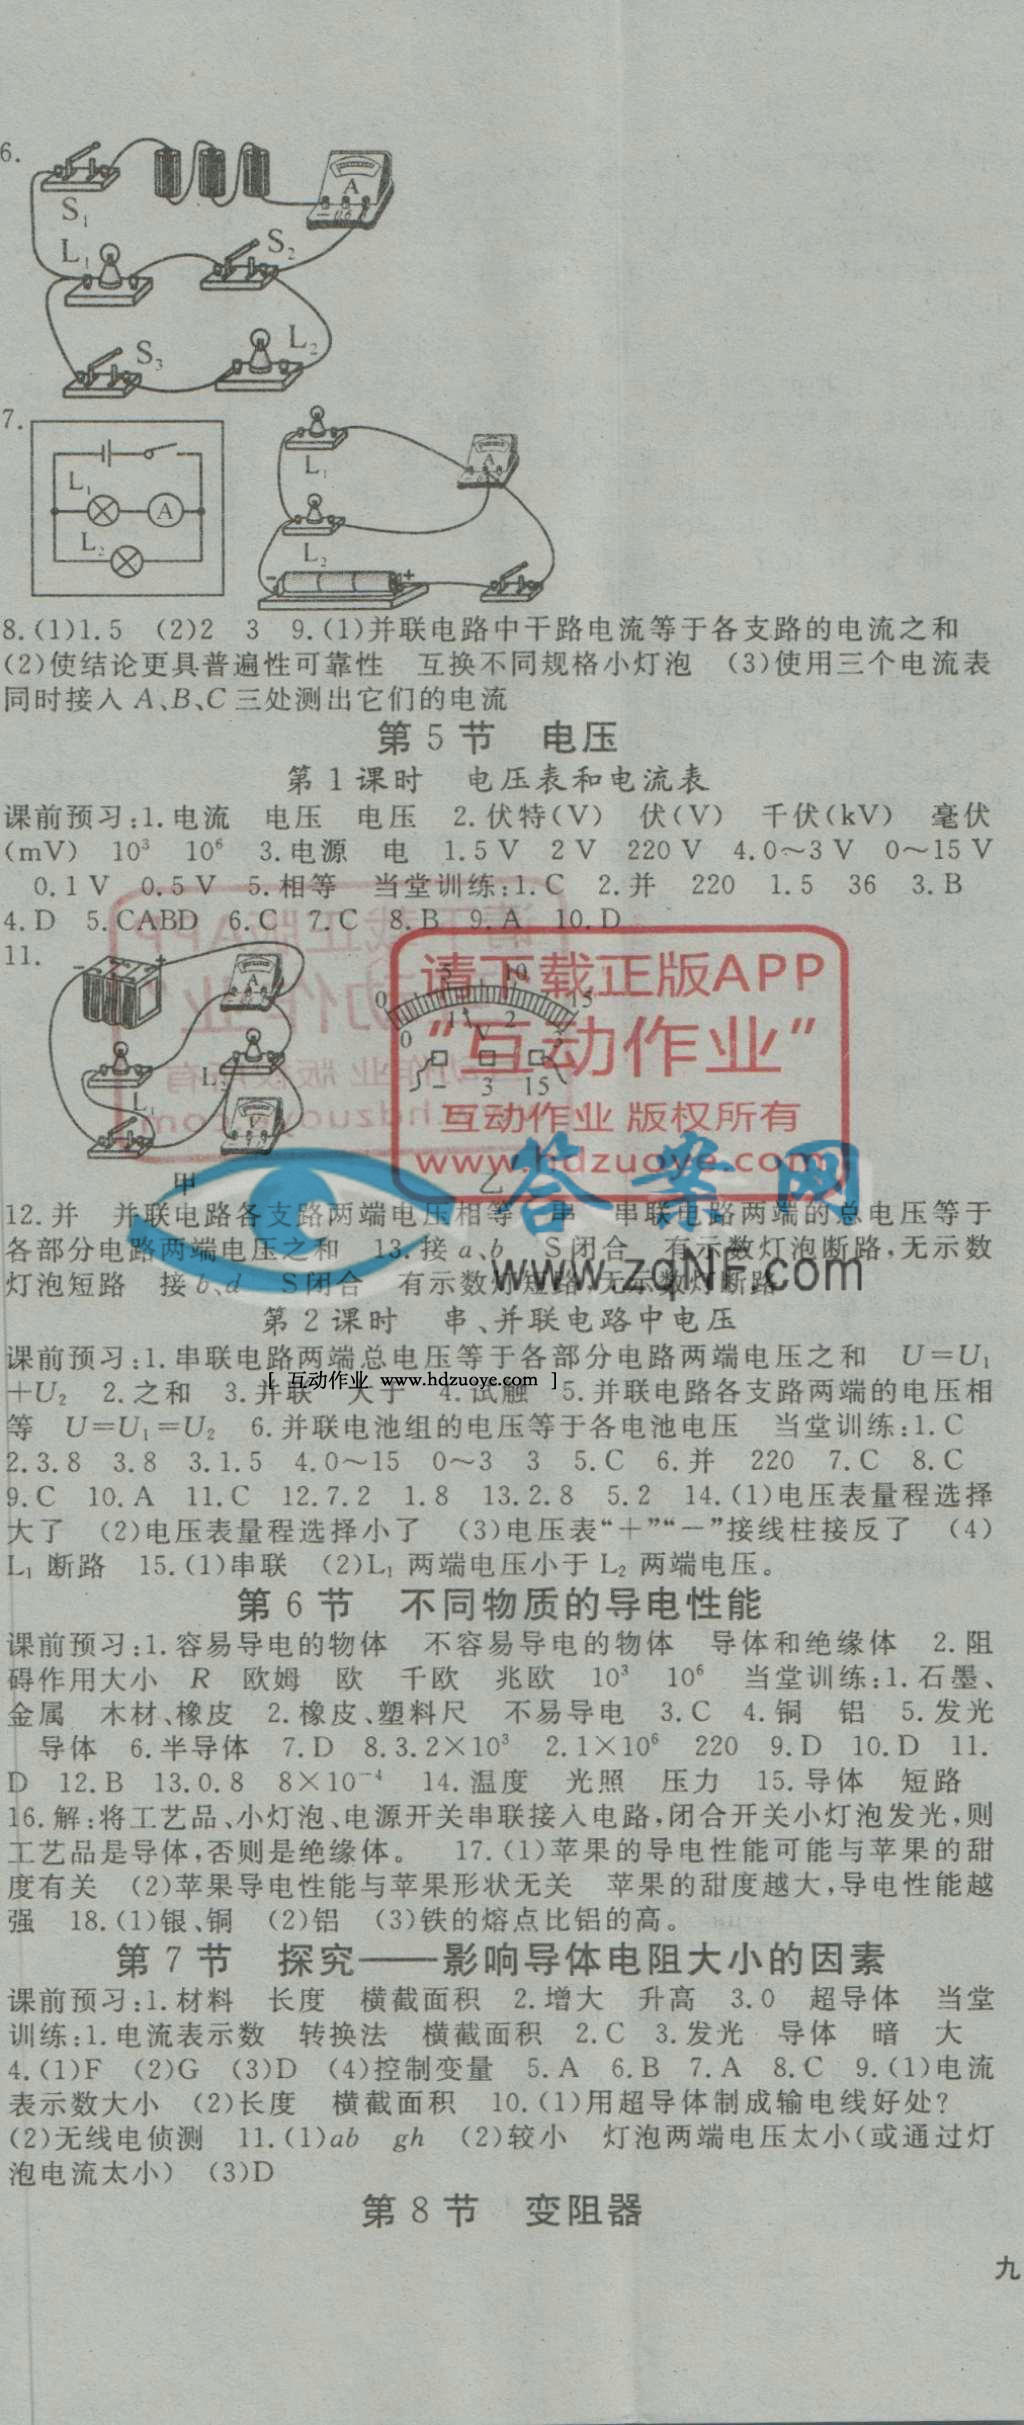 6.
S₁
A
L₁
S₂
S₃
L₂
7.
L₁
A
L₂
L₁
A
L₂
- +
8.(1)1.5 (2)2 3 9.(1)并联电路中干路电流等于各支路的电流之和
(2)使结论更具普遍性可靠性 互换不同规格小灯泡 (3)使用三个电流表
同时接入 A、B、C 三处测出它们的电流
第 5 节 电压
第 1 课时 电压表和电流表
课前预习:1.电流 电压 电压 2.伏特(V) 伏(V) 千伏(kV) 毫伏
(mV) 10³ 10⁶ 3.电源 电 1.5 V 2 V 220 V 4.0～3 V 0～15 V
0.1 V 0.5 V 5.相等 当堂训练:1.C 2.并 220 1.5 36 3.B
4.D 5.CABD 6.C 7.C 8.B 9.A 10.D
11.
- +
A
V
0 5 10 15
0 1 2 3
V
- 3 15
甲 乙
请下载正版APP
“互动作业”
互动作业 版权所有
www.hdzuoye.com
答案网
www.zqNF.com
12.并 并联电路各支路两端电压相等 串 串联电路两端的总电压等于
各部分电路两端电压之和 13.接 a、b S闭合 有示数灯泡断路,无示数
灯泡短路 接 b、d S闭合 有示数灯短路,无示数灯断路
第 2 课时 串、并联电路中电压
课前预习:1.串联电路两端总电压等于各部分电路两端电压之和 U＝U₁
[ 互动作业 www.hdzuoye.com ]
＋U₂ 2.之和 3.并联 大于 4.试触 5.并联电路各支路两端的电压相
等 U＝U₁＝U₂ 6.并联电池组的电压等于各电池电压 当堂训练:1.C
2.3.8 3.8 3.1.5 4.0～15 0～3 3 5.C 6.并 220 7.C 8.C
9.C 10.A 11.C 12.7.2 1.8 13.2.8 5.2 14.(1)电压表量程选择
大了 (2)电压表量程选择小了 (3)电压表“＋”“－”接线柱接反了 (4)
L₁ 断路 15.(1)串联 (2)L₁ 两端电压小于 L₂ 两端电压。
第 6 节 不同物质的导电性能
课前预习:1.容易导电的物体 不容易导电的物体 导体和绝缘体 2.阻
碍作用大小 R 欧姆 欧 千欧 兆欧 10³ 10⁶ 当堂训练:1.石墨、
金属 木材、橡皮 2.橡皮、塑料尺 不易导电 3.C 4.铜 铝 5.发光
导体 6.半导体 7.D 8.3.2×10³ 2.1×10⁶ 220 9.D 10.D 11.
D 12.B 13.0.8 8×10⁻⁴ 14.温度 光照 压力 15.导体 短路
16.解:将工艺品、小灯泡、电源开关串联接入电路,闭合开关小灯泡发光,则
工艺品是导体,否则是绝缘体。 17.(1)苹果的导电性能可能与苹果的甜
度有关 (2)苹果导电性能与苹果形状无关 苹果的甜度越大,导电性能越
强 18.(1)银、铜 (2)铝 (3)铁的熔点比铝的高。
第 7 节 探究——影响导体电阻大小的因素
课前预习:1.材料 长度 横截面积 2.增大 升高 3.0 超导体 当堂
训练:1.电流表示数 转换法 横截面积 2.C 3.发光 导体 暗 大
4.(1)F (2)G (3)D (4)控制变量 5.A 6.B 7.A 8.C 9.(1)电流
表示数大小 (2)长度 横截面积 10.(1)用超导体制成输电线好处?
(2)无线电侦测 11.(1)ab gh (2)较小 灯泡两端电压太小(或通过灯
泡电流太小) (3)D
第 8 节 变阻器
九